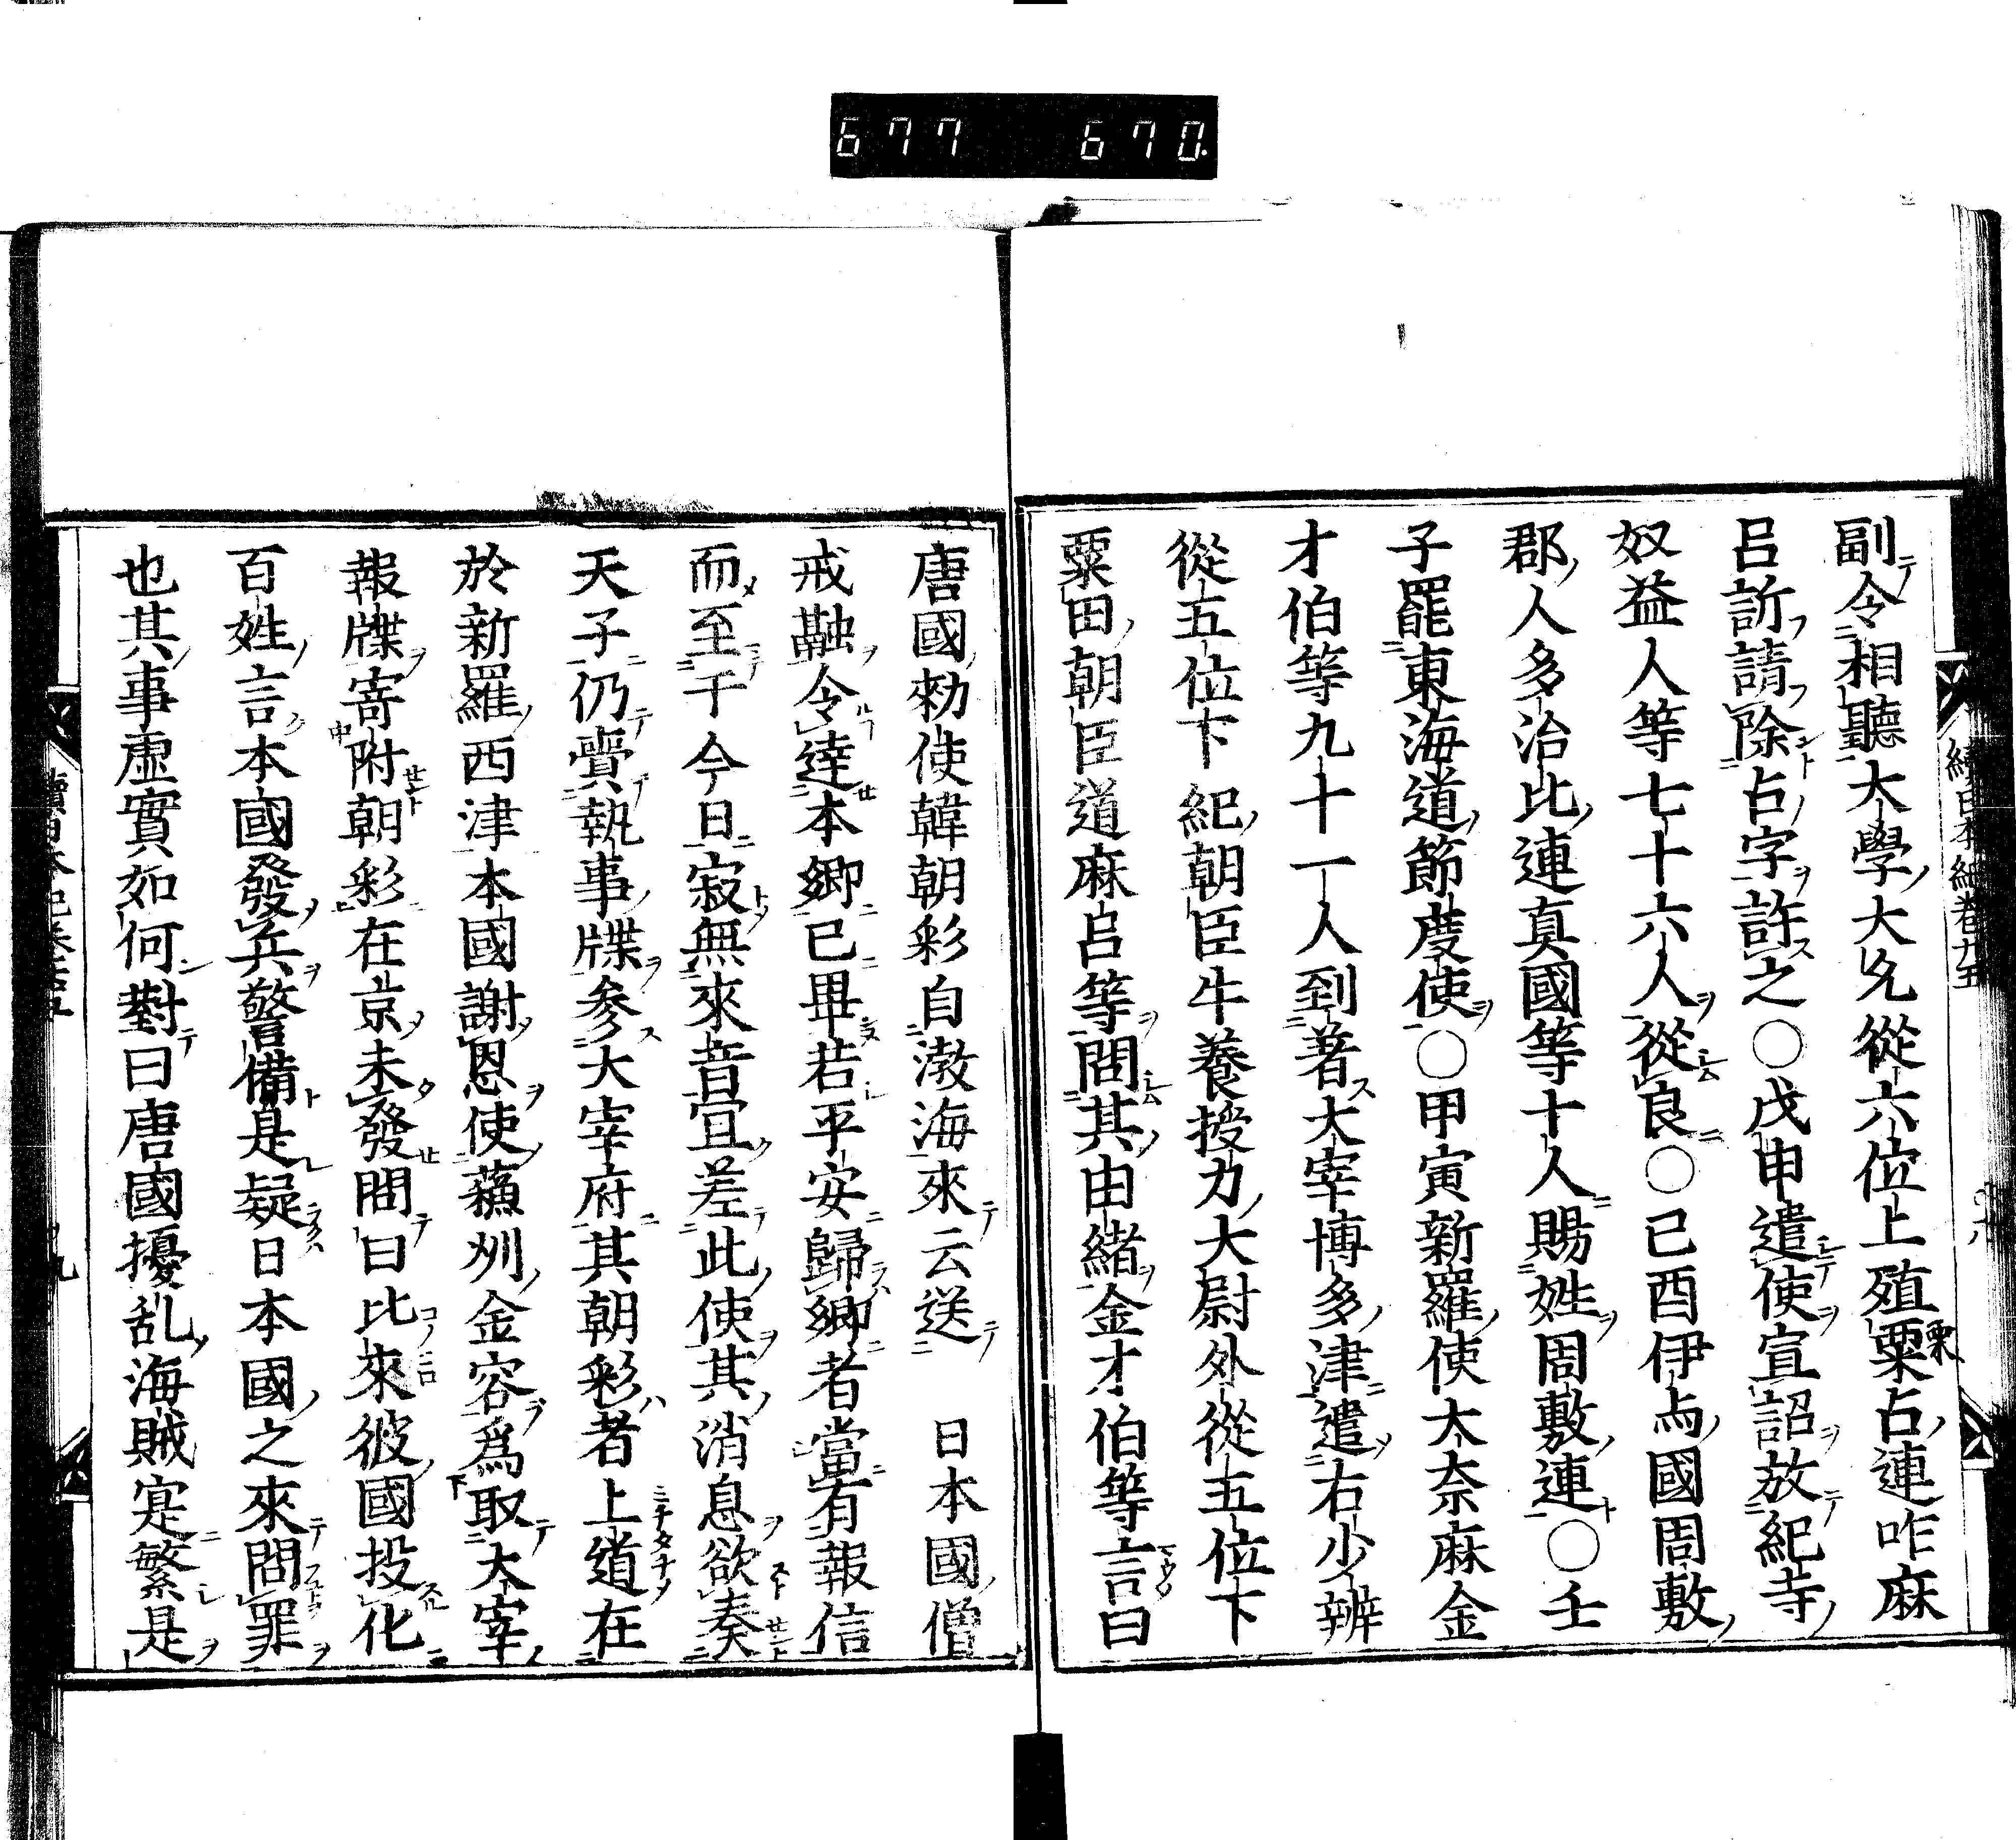 677 670.
副令相聽大學大允從六位上殖栗占連咋麻
呂訢請除占字許之○戊申遣使宣詔放紀寺
奴益人等七十六人從良○己酉伊与國周敷
郡人多治比連真國等十人賜姓周敷連○壬
子罷東海道節度使○甲寅新羅使大奈麻金
才伯等九十一人到著大宰博多津遣右少辨
從五位下紀朝臣牛養授刀大尉外從五位下
粟田朝臣道麻呂等問其由緒金才伯等言曰
唐國勑使韓朝彩自渤海來云送 日本國僧
戒融令達本鄉已畢若平安歸鄉者當有報信
而至于今日寂無來音宜差此使其消息欲奏
天子仍賷執事牒参大宰府其朝彩者上道在
於新羅西津本國謝恩使蘓州金容爲取大宰
報牒寄附朝彩在京未發問曰比來彼國投化
百姓言本國發兵警備是疑日本國之來問罪
也其事虛實如何對曰唐國擾乱海賊寔繁是